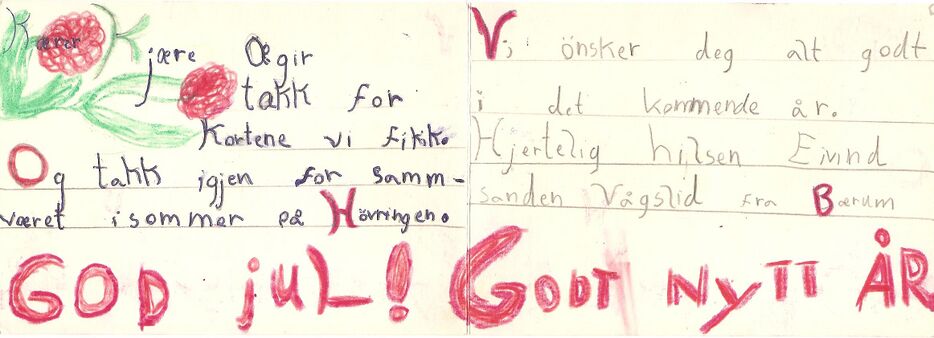 Kærer
jære Ægir
takk for
kortene vi fikk.
Og takk igjen for samm-
været isommer på Hövringen.
GOD JUL!
Vi önsker deg alt godt
i det kommende år.
Hjertelig hilsen Eivind
sanden Vågslid fra Bærum
GODT NYTT ÅR